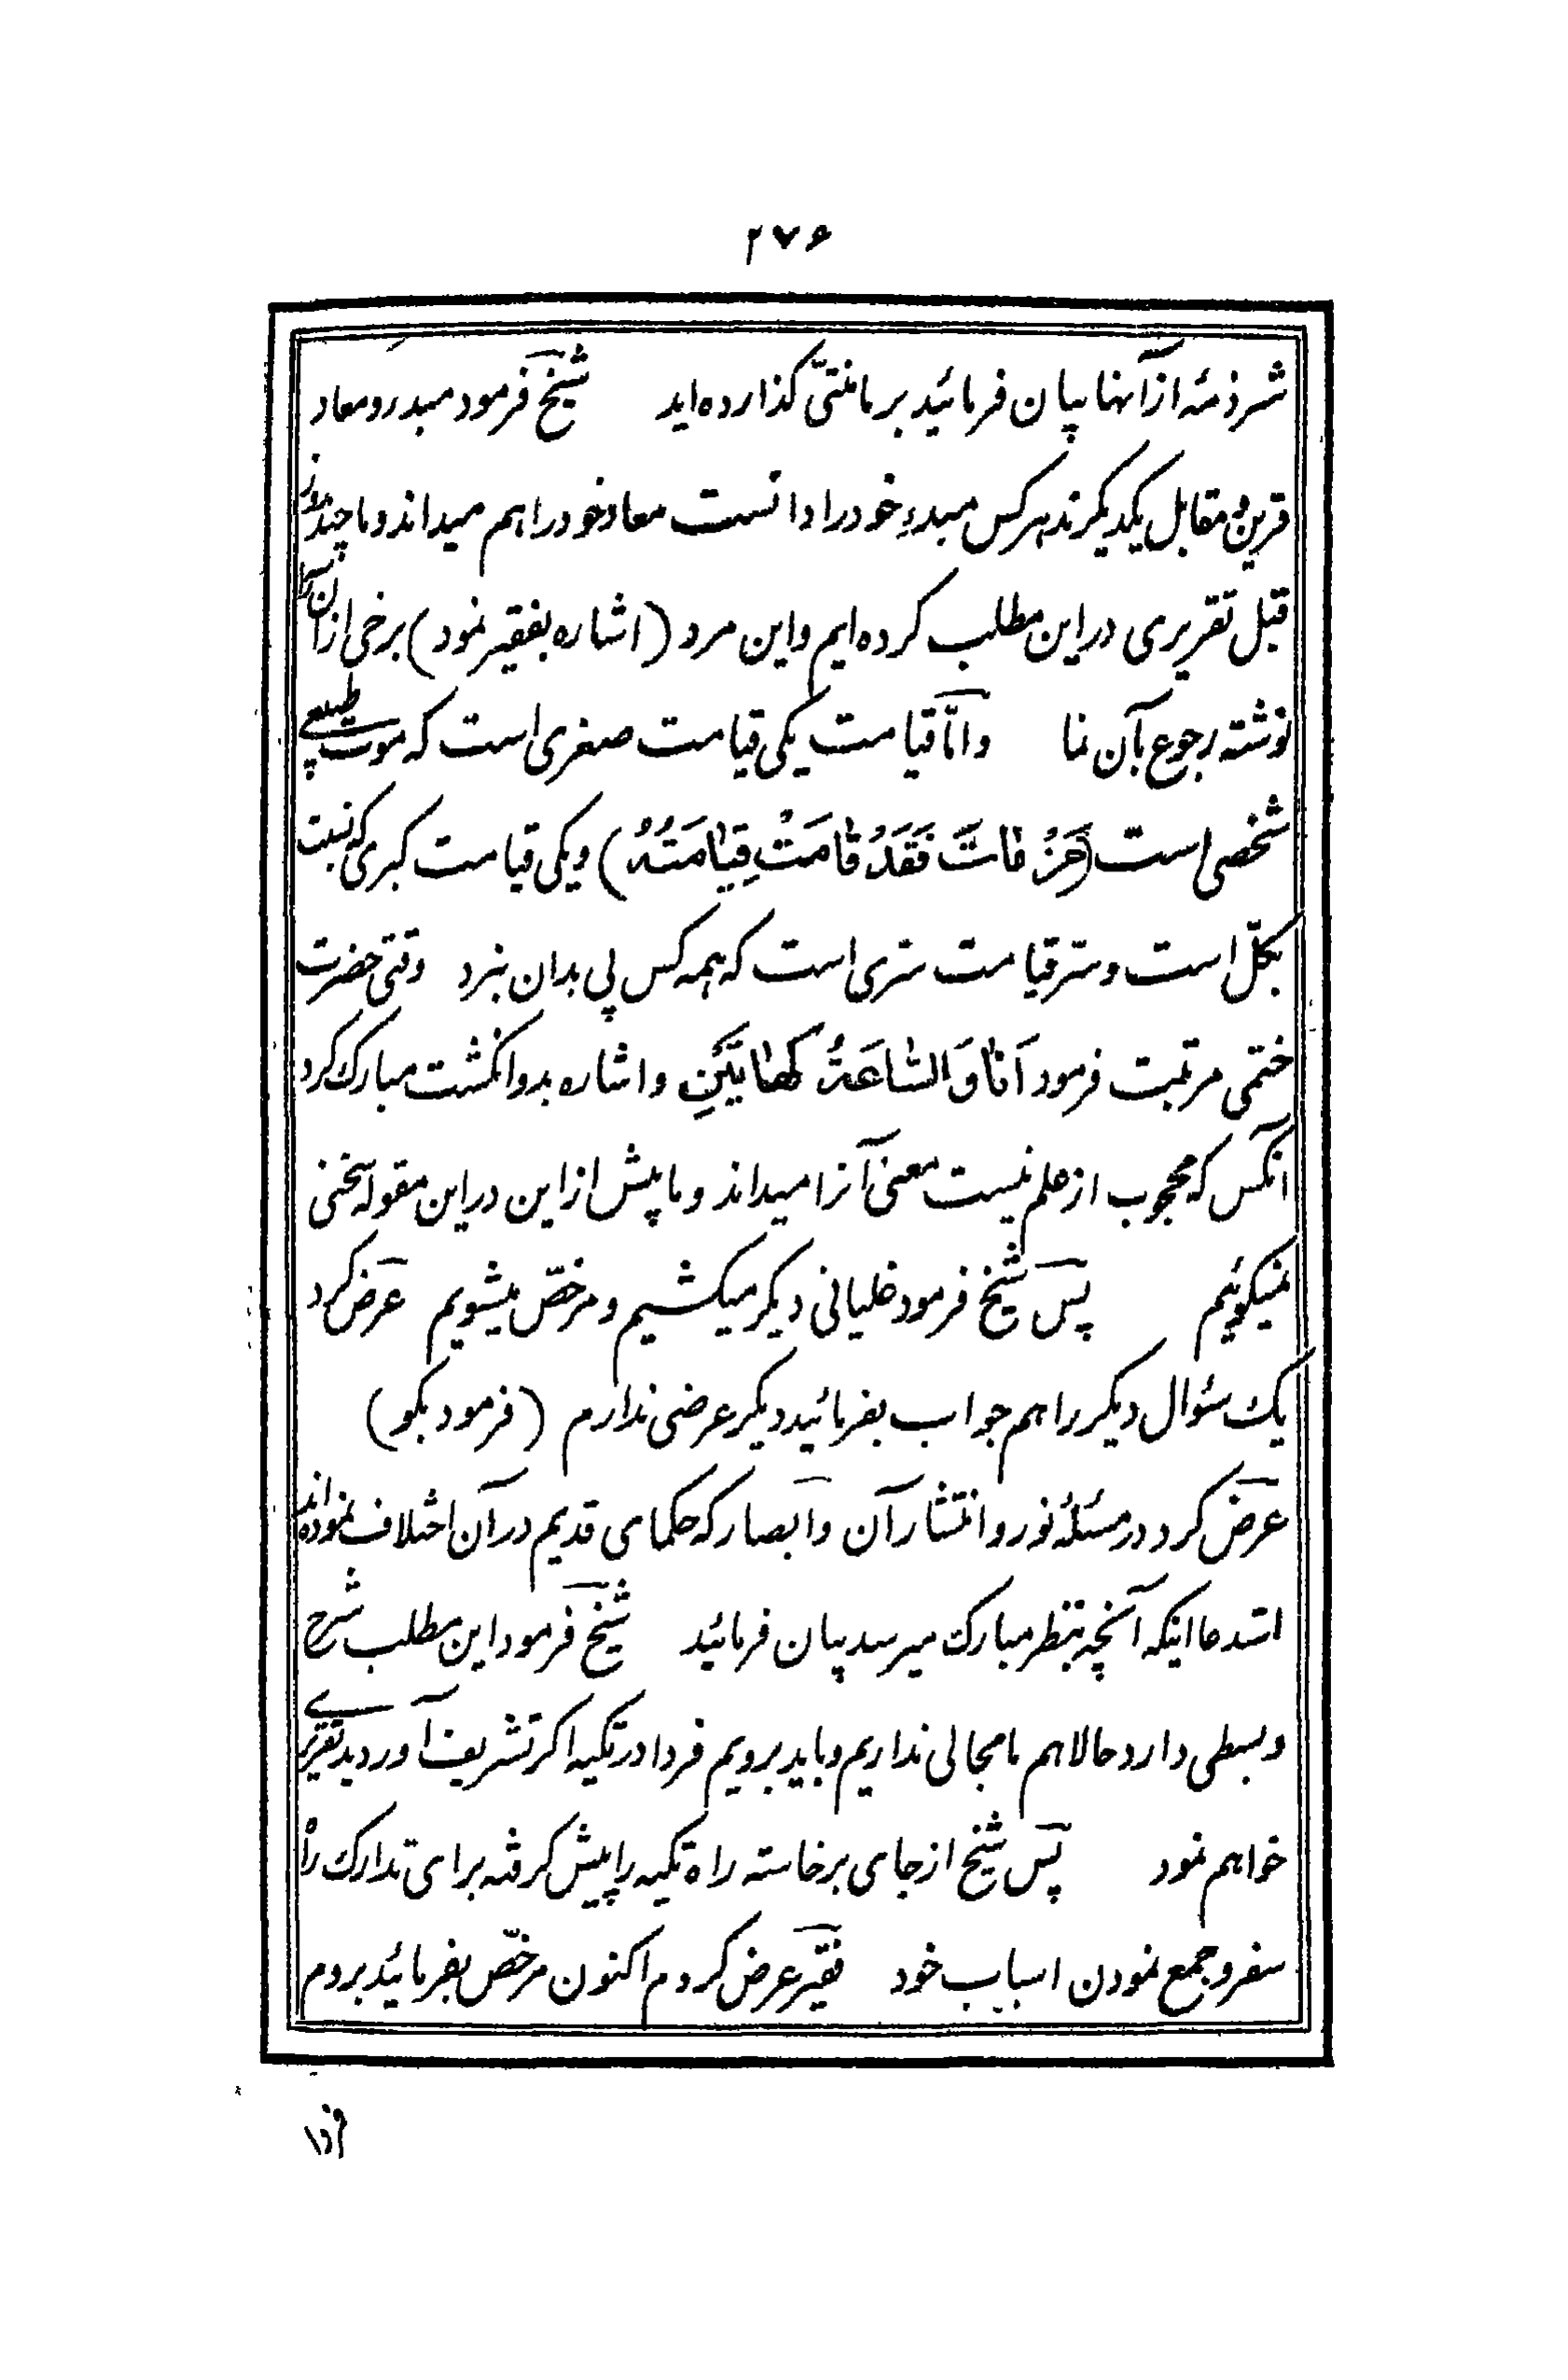 ۲۷۶
شرذمهٔ از آنها بیان فرمائید بر ما منّتی گذارده‌اید شیخ فرمود مبدء و معاد
قرین و مقابل یکدیگرند هر کس مبدء خود را دانست معاد خود را هم میداند و ما چند روز
قبل تقریری در این مطلب کرده‌ایم و این مرد (اشاره بفقیر نمود) برخی از آن را
نوشته رجوع بآن نما و امّا قیامت یکی قیامت صغری است که موت طبیعی
شخصی است (مَنْ مٰاتَ فَقَدْ قٰامَتْ قِیٰامَتُهُ) و یکی قیامت کبری که نسبت
بکلّ است و سرّ قیامت سرّی است که همه کس پی بدان نبرد وقتی حضرت
ختمی مرتبت فرمود اَنَا وَ السّٰاعَةُ کَهٰاتَیْنِ و اشاره بدو انگشت مبارک کرد
آنکس که محجوب از علم نیست معنی آنرا میداند و ما پیش از این در این مقوله سخنی
نمیگوئیم پس شیخ فرمود غلیانی دیگر میکشیم و مرخّص میشویم عرض کرد
یک سئوال دیگر را هم جواب بفرمائید دیگر عرضی ندارم (فرمود بگو)
عرض کرد در مسئلهٔ نور و انتشار آن و ابصار که حکمای قدیم در آن اختلاف نموده‌اند
استدعا اینکه آنچه بنظر مبارک میرسد بیان فرمائید شیخ فرمود این مطلب شرح
و بسطی دارد حالا هم ما مجالی نداریم و باید برویم فردا در تکیه اگر تشریف آوردید تقریری
خواهم نمود پس شیخ از جای برخاسته راه تکیه را پیش گرفته برای تدارک راه
سفر و جمع نمودن اسباب خود فقیر عرض کردم اکنون مرخّص بفرمائید بروم
فردا